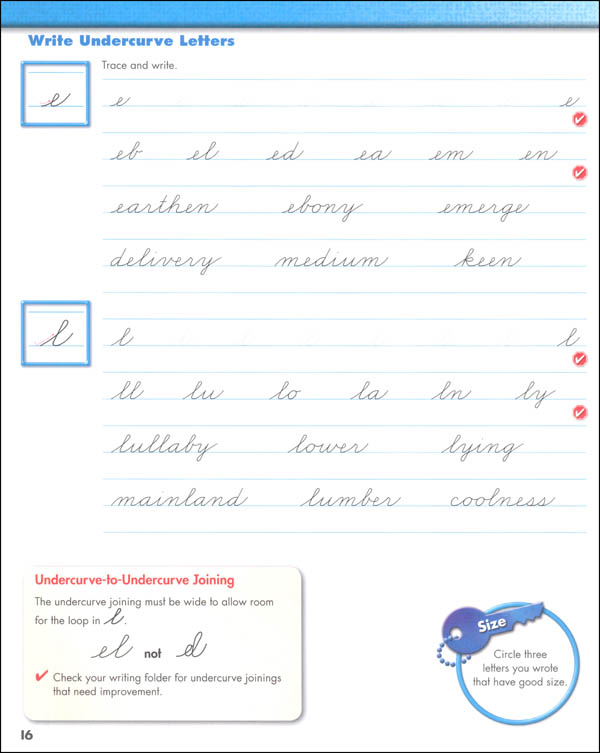 Write Undercurve Letters
Trace and write.
e e e
eb el ed ea em en
earthen ebony emerge
delivery medium keen
l l l
ll lu lo la ln ly
lullaby lower lying
mainland lumber coolness
Undercurve-to-Undercurve Joining
The undercurve joining must be wide to allow room
for the loop in l.
el not el
✓ Check your writing folder for undercurve joinings
that need improvement.
Size
Circle three
letters you wrote
that have good size.
16